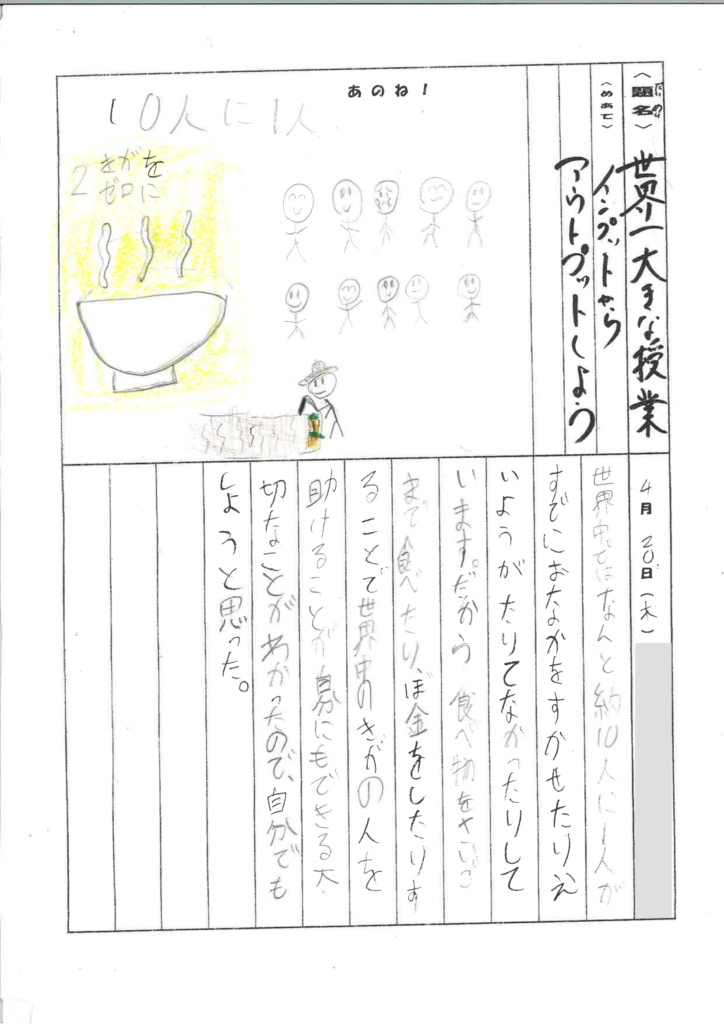 〈題名〉世界一大きな授業
〈めあて〉インプットから
アウトプットしよう
あのね!
10人に1人
2 きがを
ゼロに
4月20日(木)
世界中ではなんと約10人に1人が
すでにおなかをすかせたりえ
いようがたりてなかったりして
います。だから 食べ物をさいご
まで食べたり、ぼ金をしたりす
ることで世界中のきがの人を
助けることが自分にもできる大
切なことがわかったので、自分でも
しようと思った。